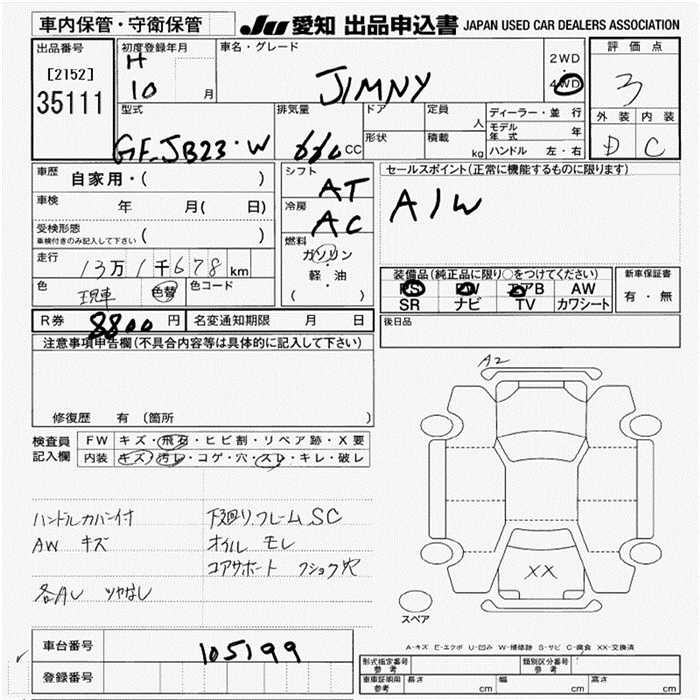 車内保管・守衛保管 JU 愛知 出品申込書 JAPAN USED CAR DEALERS ASSOCIATION
出品番号 初度登録年月 車名・グレード 2WD 評価点
[2152] H JIMNY ・ 3
35111 10 月 4WD
型式 排気量 ドア 定員 人 ディーラー・並行 外装 内装
モデル年式 年
GF-JB23・W 660 CC 形状 積載 kg ハンドル 左・右 D C
車歴 自家用・( ) シフト AT セールスポイント(正常に機能するものに限ります)
車検 年 月( 日) 冷房 AC A/W
受検形態
車検付きのみ記入して下さい ( ) 燃料
走行 13万1千678km ガソリン
軽・油 装備品(純正品に限り○をつけてください) 新車保証書
色 現車 色替 色コード ( ) PS PW エアB AW 有・無
SR ナビ TV カワシート
R券 8800円 名変通知期限 月 日 後日品
注意事項申告欄(不具合内容等は具体的に記入して下さい)
A2
修復歴 有 (箇所 )
検査員 FW キズ・飛石・ヒビ割・リペア跡・X要
記入欄 内装 キズ・汚レ・コゲ・穴・スレ・キレ・破レ
ハンドルカバー付 下廻り、フレームSC
AW キズ オイル モレ
コアサポート XX
各AL ツヤなし
スペア
A-キズ E-エクボ U-凹み W-補修跡 S-サビ C-腐食 XX-交換済
車台番号 105199
型式指定番号 参考 類別区分番号 参考
登録番号 車庫証明用 参考 長さ cm 幅 cm 高さ cm